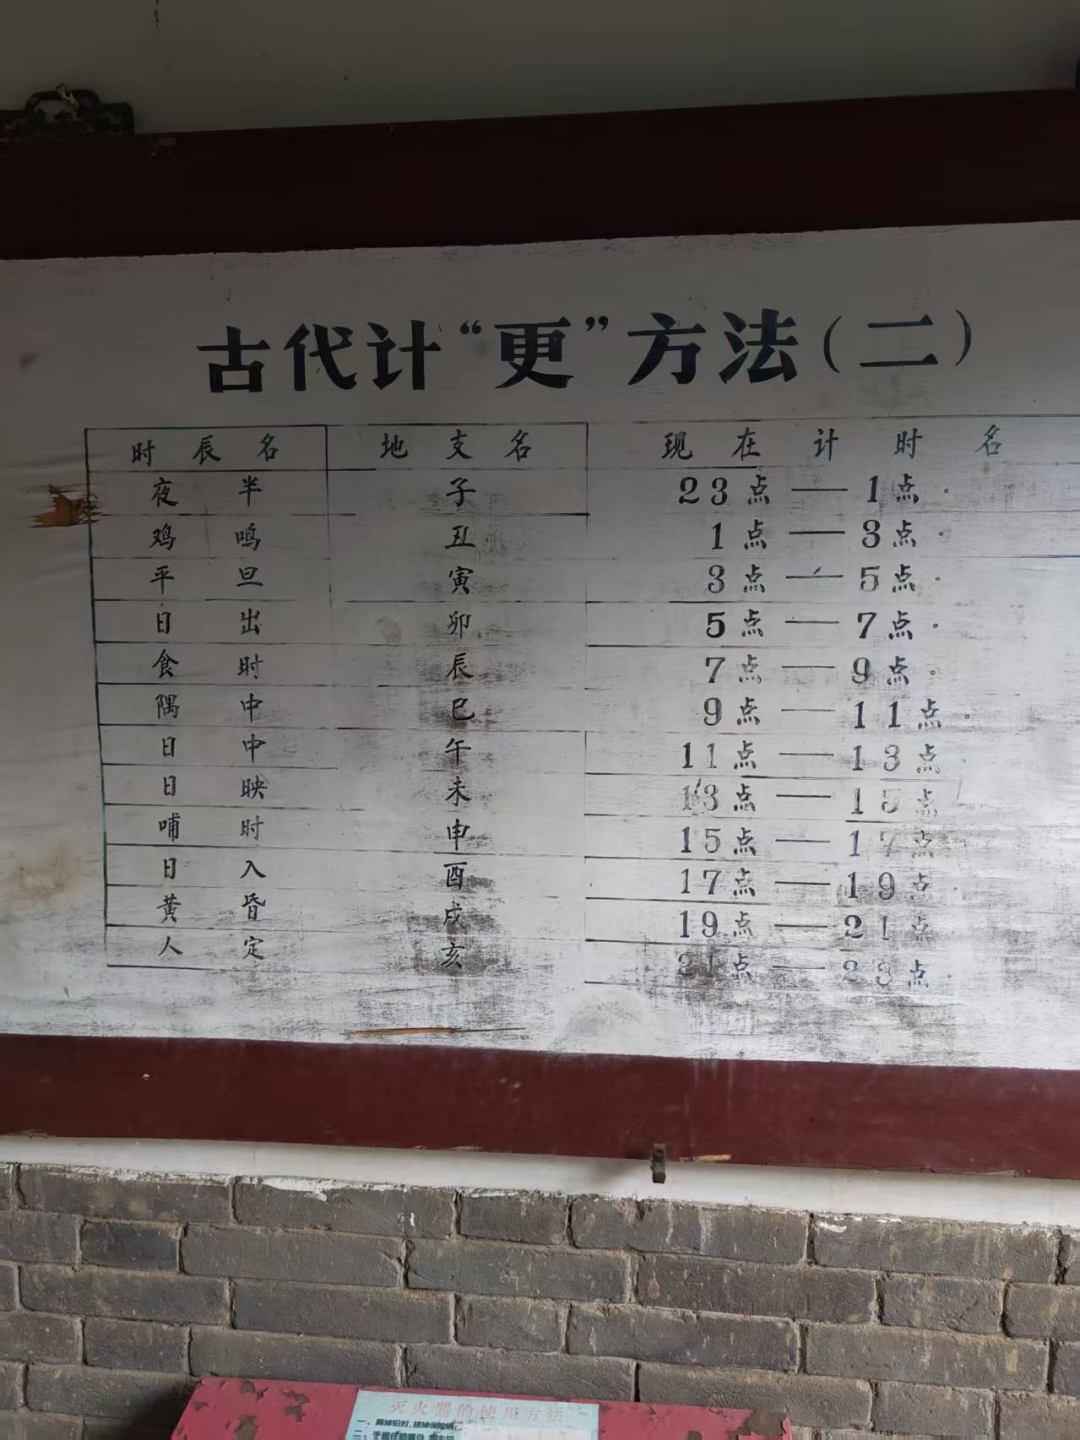 古代计“更”方法（二）
时辰名 地支名 现在计时名
夜半 子 23点——1点
鸡鸣 丑 1点——3点
平旦 寅 3点——5点
日出 卯 5点——7点
食时 辰 7点——9点
隅中 巳 9点——11点
日中 午 11点——13点
日映 未 13点——15点
哺时 申 15点——17点
日入 酉 17点——19点
黄昏 戌 19点——21点
人定 亥 21点——23点
灭火器的使用方法